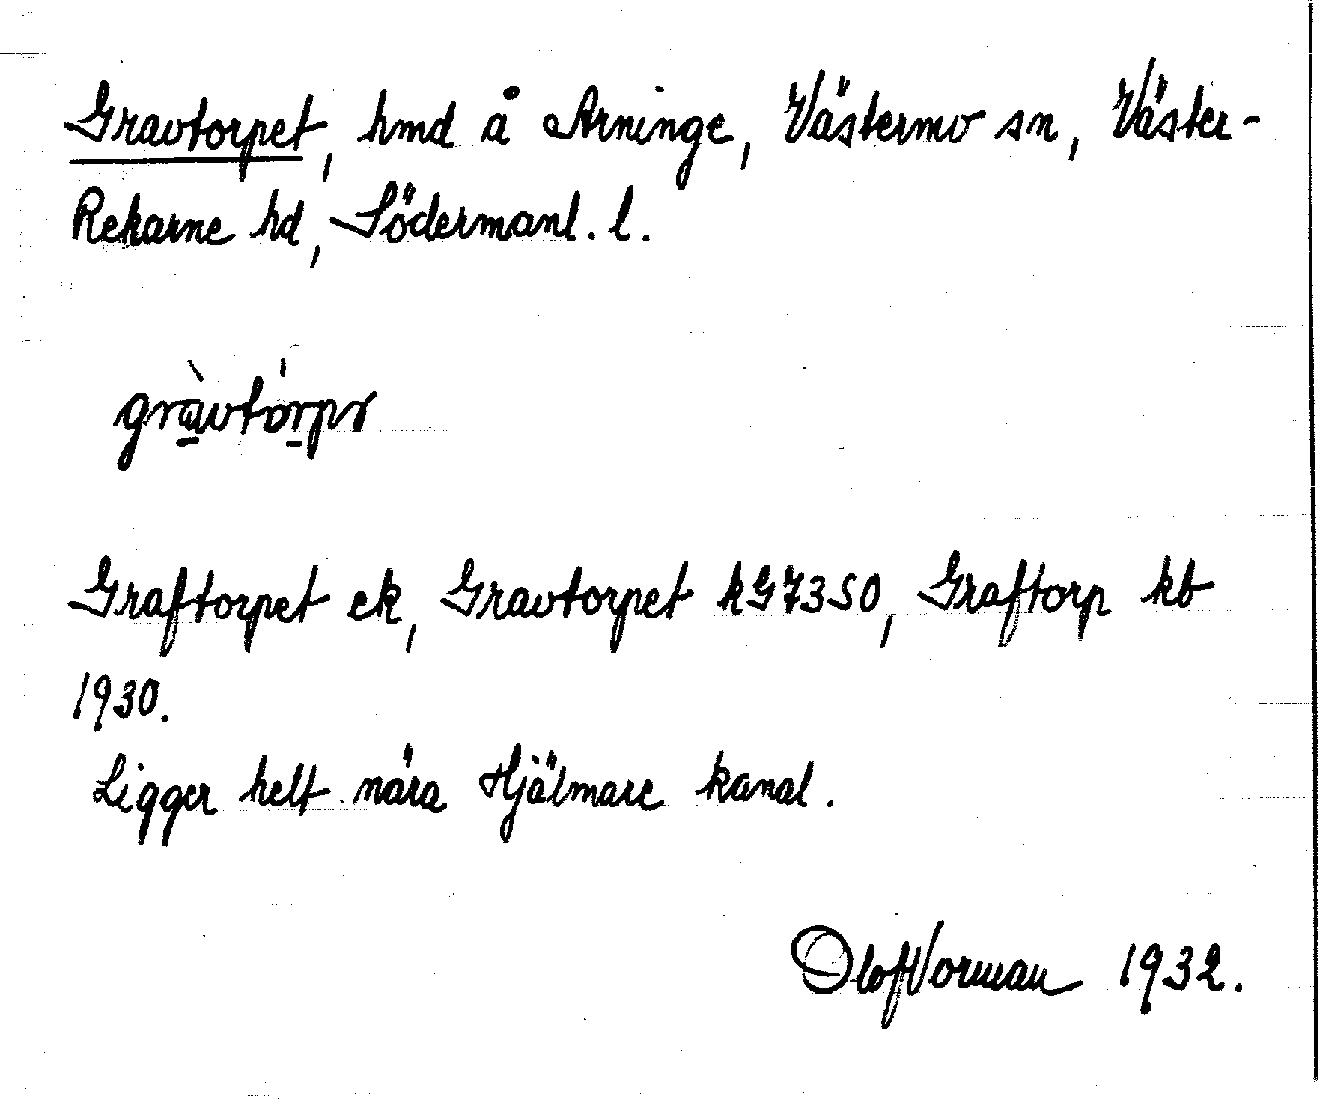 Gravtorpet, hmd å Arninge, Västermo sn, Väster-
Rekarne hd, Södermanl. l.
Graftorpet ek, Gravtorpet kG7350, Graftorp kb
1930.
Ligger helt nära Hjälmare kanal.
Olof Vorman 1932.